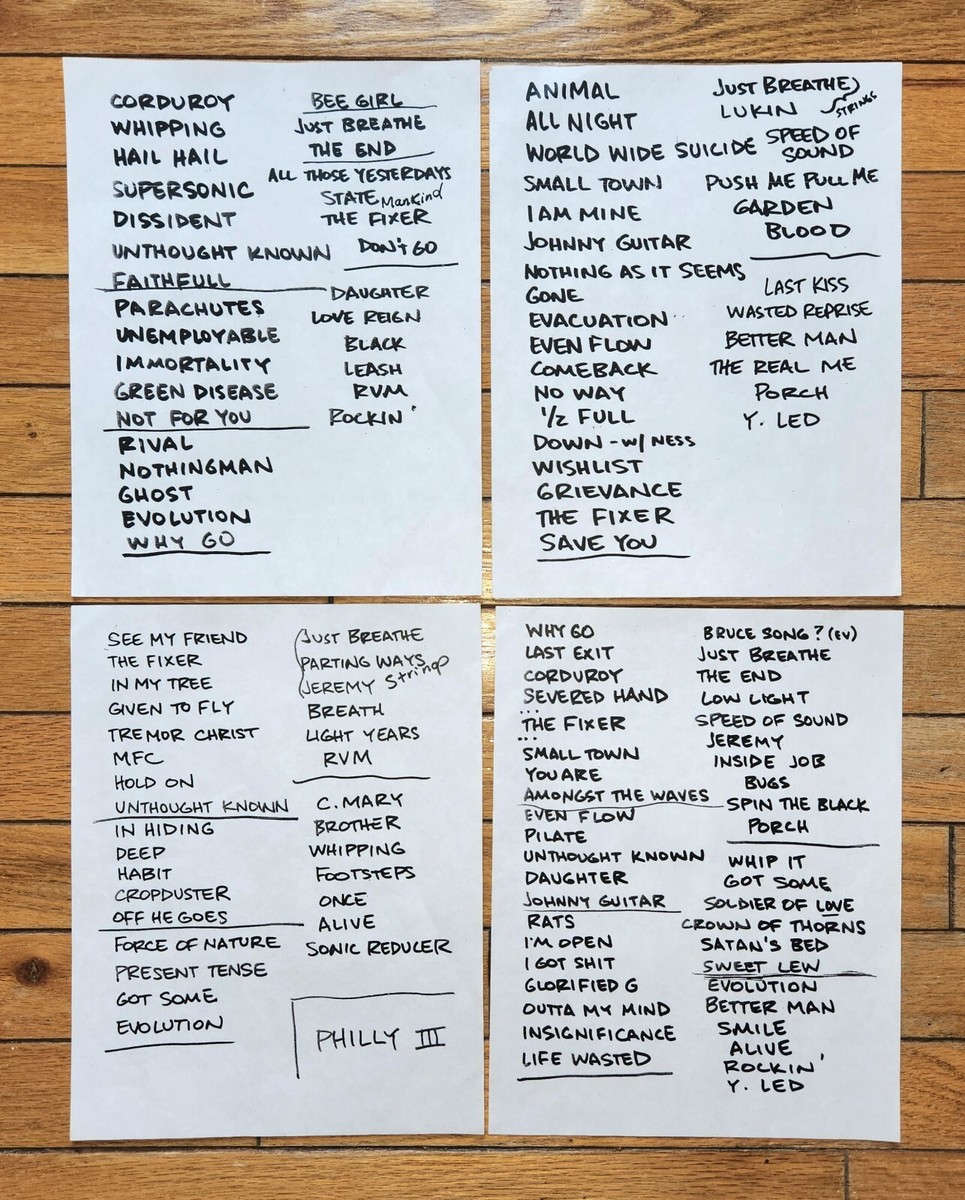 CORDUROY
WHIPPING
HAIL HAIL
SUPERSONIC
DISSIDENT
UNTHOUGHT KNOWN
FAITHFULL
PARACHUTES
UNEMPLOYABLE
IMMORTALITY
GREEN DISEASE
NOT FOR YOU
RIVAL
NOTHINGMAN
GHOST
EVOLUTION
WHY GO
BEE GIRL
JUST BREATHE
THE END
ALL THOSE YESTERDAYS
STATE Mankind
THE FIXER
DON'T GO
DAUGHTER
LOVE REIGN
BLACK
LEASH
RVM
ROCKIN'
ANIMAL
ALL NIGHT
WORLD WIDE SUICIDE
SMALL TOWN
I AM MINE
JOHNNY GUITAR
NOTHING AS IT SEEMS
GONE
EVACUATION
EVEN FLOW
COMEBACK
NO WAY
1/2 FULL
DOWN - W/ NESS
WISHLIST
GRIEVANCE
THE FIXER
SAVE YOU
JUST BREATHE
LUKIN STRINGS
SPEED OF
SOUND
PUSH ME PULL ME
GARDEN
BLOOD
LAST KISS
WASTED REPRISE
BETTER MAN
THE REAL ME
PORCH
Y. LED
SEE MY FRIEND
THE FIXER
IN MY TREE
GIVEN TO FLY
TREMOR CHRIST
MFC
HOLD ON
UNTHOUGHT KNOWN
IN HIDING
DEEP
HABIT
CROPDUSTER
OFF HE GOES
FORCE OF NATURE
PRESENT TENSE
GOT SOME
EVOLUTION
JUST BREATHE
PARTING WAYS
JEREMY Strings
BREATH
LIGHT YEARS
RVM
C. MARY
BROTHER
WHIPPING
FOOTSTEPS
ONCE
ALIVE
SONIC REDUCER
PHILLY III
WHY GO
LAST EXIT
CORDUROY
SEVERED HAND
...
THE FIXER
...
SMALL TOWN
YOU ARE
AMONGST THE WAVES
EVEN FLOW
PILATE
UNTHOUGHT KNOWN
DAUGHTER
JOHNNY GUITAR
RATS
I'M OPEN
I GOT SHIT
GLORIFIED G
OUTTA MY MIND
INSIGNIFICANCE
LIFE WASTED
BRUCE SONG? (EV)
JUST BREATHE
THE END
LOW LIGHT
SPEED OF SOUND
JEREMY
INSIDE JOB
BUGS
SPIN THE BLACK
PORCH
WHIP IT
GOT SOME
SOLDIER OF LOVE
CROWN OF THORNS
SATAN'S BED
SWEET LEW
EVOLUTION
BETTER MAN
SMILE
ALIVE
ROCKIN'
Y. LED